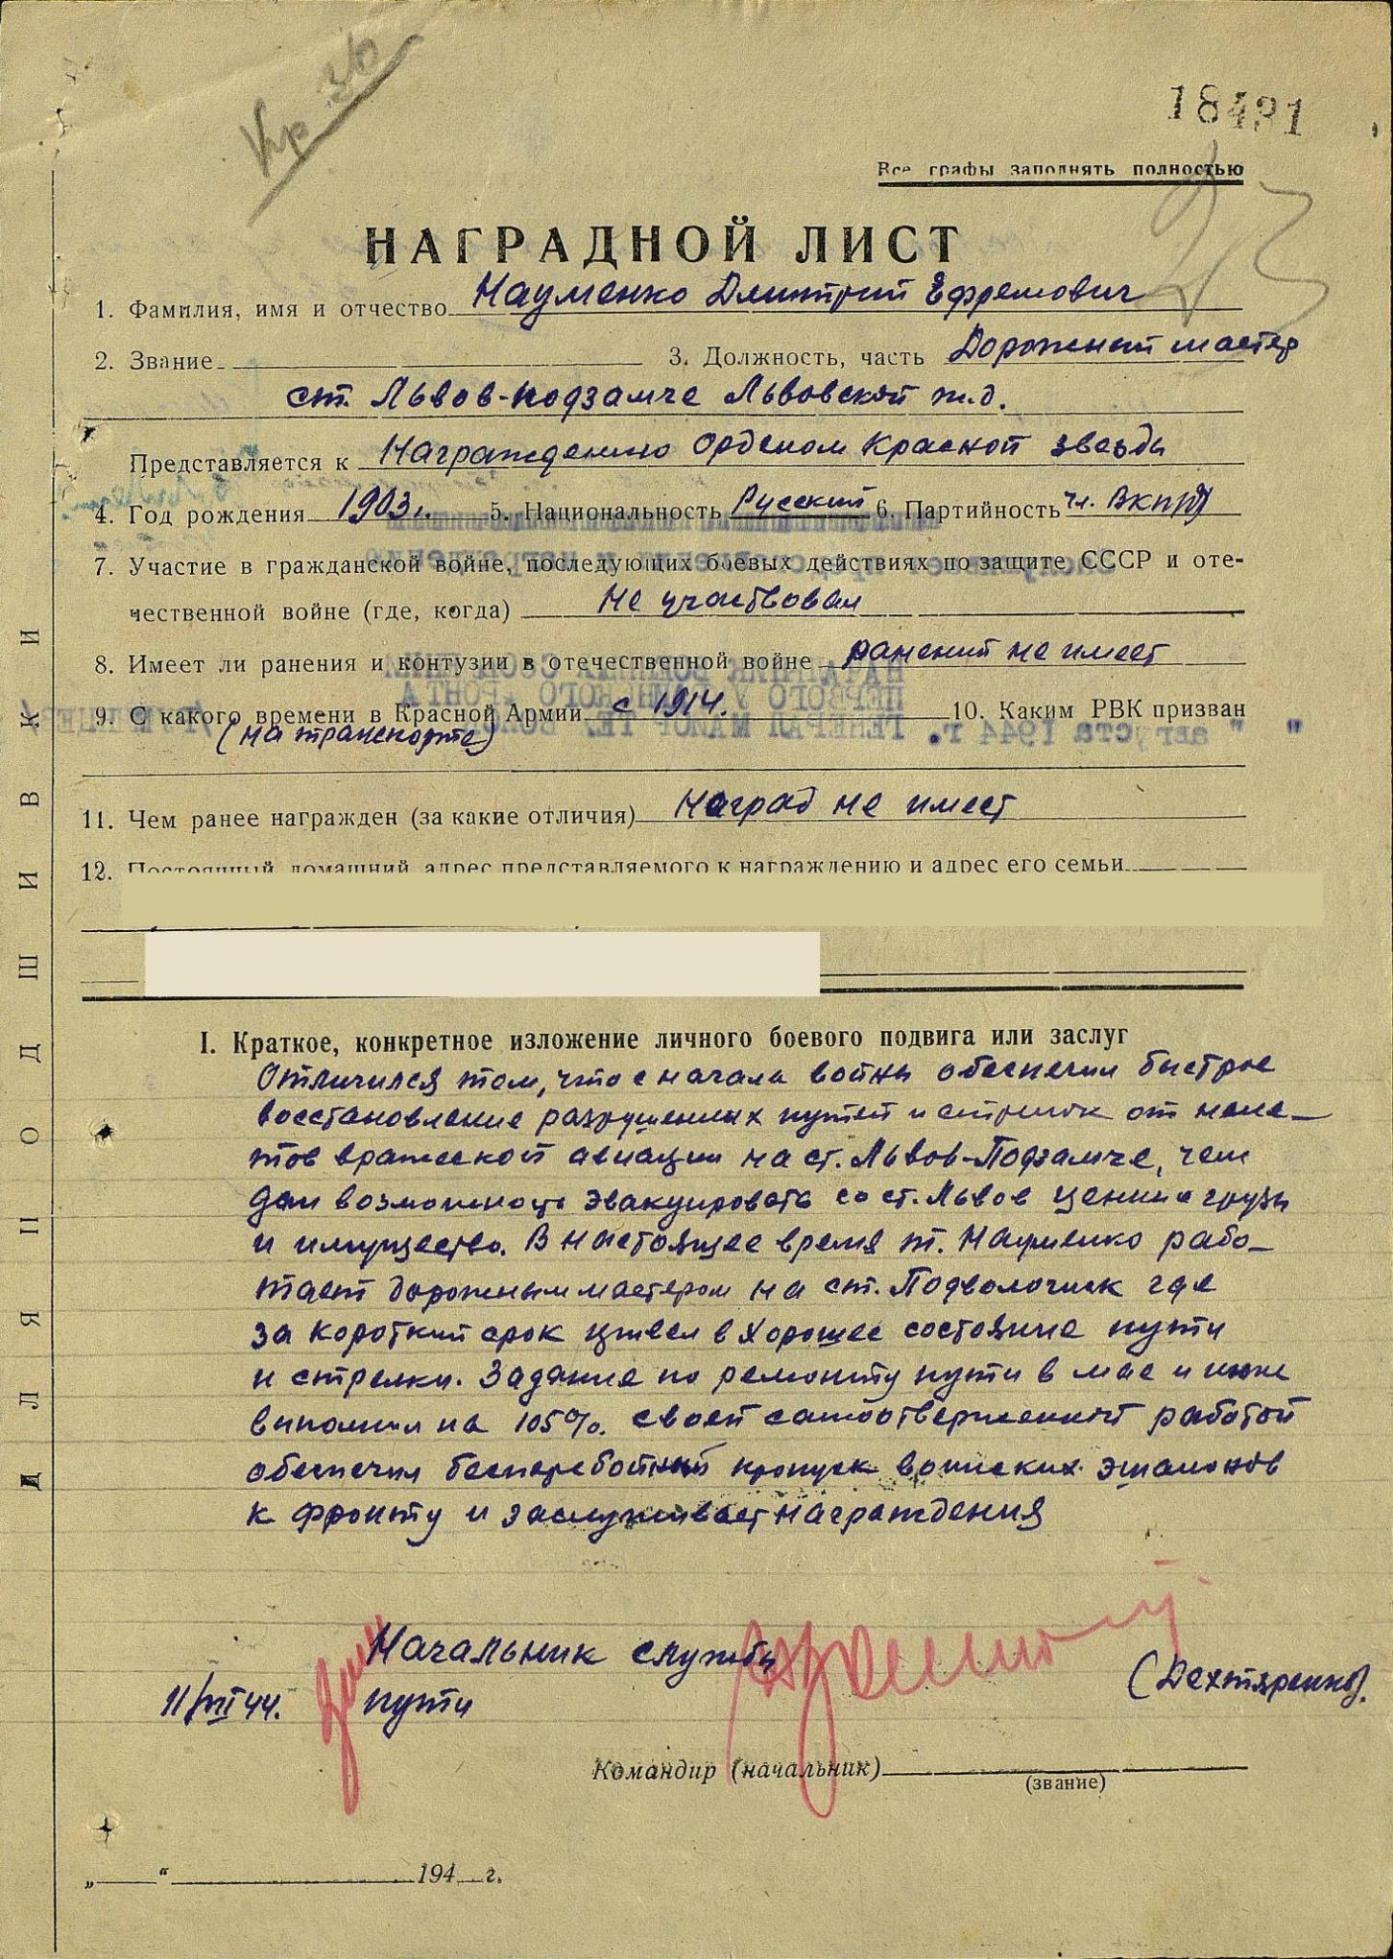 Кр. Зв
18431
Все графы заполнять полностью
НАГРАДНОЙ ЛИСТ
1. Фамилия, имя и отчество Науменко Дмитрий Ефремович
2. Звание 3. Должность, часть Дорожный мастер
ст. Львов-подзамче Львовской ж.д.
Представляется к Награждению Орденом Красной звезды
4. Год рождения 1903г. 5. Национальность Русский 6. Партийность чл. ВКП(б)
7. Участие в гражданской войне, последующих боевых действиях по защите СССР и оте-
чественной войне (где, когда) Не участвовал
8. Имеет ли ранения и контузии в отечественной войне ранений не имеет
9. С какого времени в Красной Армии с 1914. 10. Каким РВК призван
(на транспорте)
11. Чем ранее награжден (за какие отличия) наград не имеет
12. Постоянный домашний адрес представляемого к награждению и адрес его семьи
I. Краткое, конкретное изложение личного боевого подвига или заслуг
Отличился том, что с начала войны обеспечил быстрое
восстановление разрушенных путей и стрелок от нале-
тов вражеской авиации на ст. Львов-Подзамче, чем
дал возможность эвакуировать со ст. Львов ценные грузы
и имущество. В настоящее время т. Науменко рабо-
тает дорожным мастером на ст. Подволочиск где
за короткий срок привел в хорошее состояние пути
и стрелки. Задание по ремонту пути в мае и июне
выполнил на 105%. своей самоотверженной работой
обеспечил бесперебойный пропуск воинских эшалонов
к фронту и заслуживает награждения
Начальник службы
11/VII 44. пути (Дехтяренко).
Командир (начальник)
(звание)
„ “ 194 г.
ДЛЯ ПОДШИВКИ